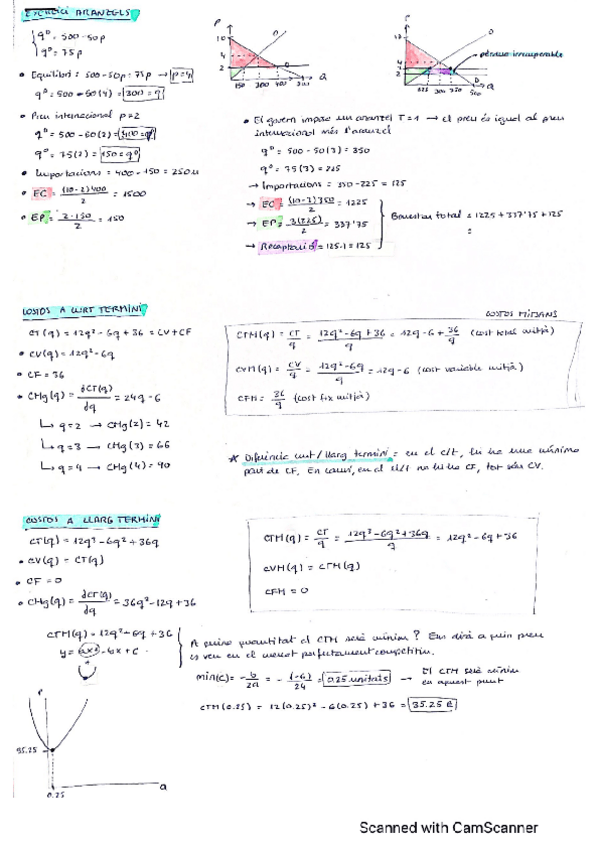 EXERCICI ARANZELS
qᴰ = 500 - 50p
qᴼ = 75p
• Equilibri: 500 - 50p = 75p → p = 4
qᴼ = 500 - 50(4) = 300 = q
• Preu internacional p = 2
qᴰ = 500 - 50(2) = 400 = qᴰ
qᴼ = 75(2) = 150 = qᴼ
• Importacions = 400 - 150 = 250u
• EC = (10-2)400 / 2 = 1500
• EP = 2·150 / 2 = 150
P
10
4
2
O
150 300 400 500 Q
P
10
4
2
pèrdua irrecuperable
O
D
225 300 350 500 Q
• El govern imposa un aranzel T = 1 → el preu és igual al preu
internacional més l'aranzel
qᴰ = 500 - 50(3) = 350
qᴼ = 75(3) = 225
→ Importacions = 350 - 225 = 125
→ EC = (10-3)350 / 2 = 1225
→ EP = 3(225) / 2 = 337'75
→ Recaptació = 125·1 = 125
Benestar total = 1225 + 337'75 + 125
=
COSTOS A CURT TERMINI
CT(q) = 12q² - 6q + 36 = CV + CF
• CV(q) = 12q² - 6q
• CF = 36
• CMg(q) = ∂CT(q) / ∂q = 24q - 6
↳ q = 2 → CMg(2) = 42
↳ q = 3 → CMg(3) = 66
↳ q = 4 → CMg(4) = 90
COSTOS MITJANS
CTM(q) = CT / q = 12q² - 6q + 36 / q = 12q - 6 + 36 / q (cost total mitjà)
CVM(q) = CV / q = 12q² - 6q / q = 12q - 6 (cost variable mitjà)
CFM = 36 / q (cost fix mitjà)
* Diferència curt/llarg termini = en el c/t, hi ha una mínima
part de CF. En canvi, en el ll/t no hi ha CF, tot són CV.
COSTOS A LLARG TERMINI
CT(q) = 12q³ - 6q² + 36q
• CV(q) = CT(q)
• CF = 0
• CMg(q) = ∂CT(q) / ∂q = 36q² - 12q + 36
CTM(q) = CT / q = 12q³ - 6q² + 36q / q = 12q² - 6q + 36
CVM(q) = CTM(q)
CFM = 0
CTM(q) = 12q² - 6q + 36
y = ax² - bx + c
A quina quantitat el CTM serà mínim? Ens dirà a quin preu
es ven en el mercat perfectament competitiu.
min(c) = -b / 2a = -(-6) / 24 = 0.25 unitats → El CTM serà mínim
en aquest punt
CTM(0.25) = 12(0.25)² - 6(0.25) + 36 = 35.25 €
P
35.25
0.25
Q
Scanned with CamScanner